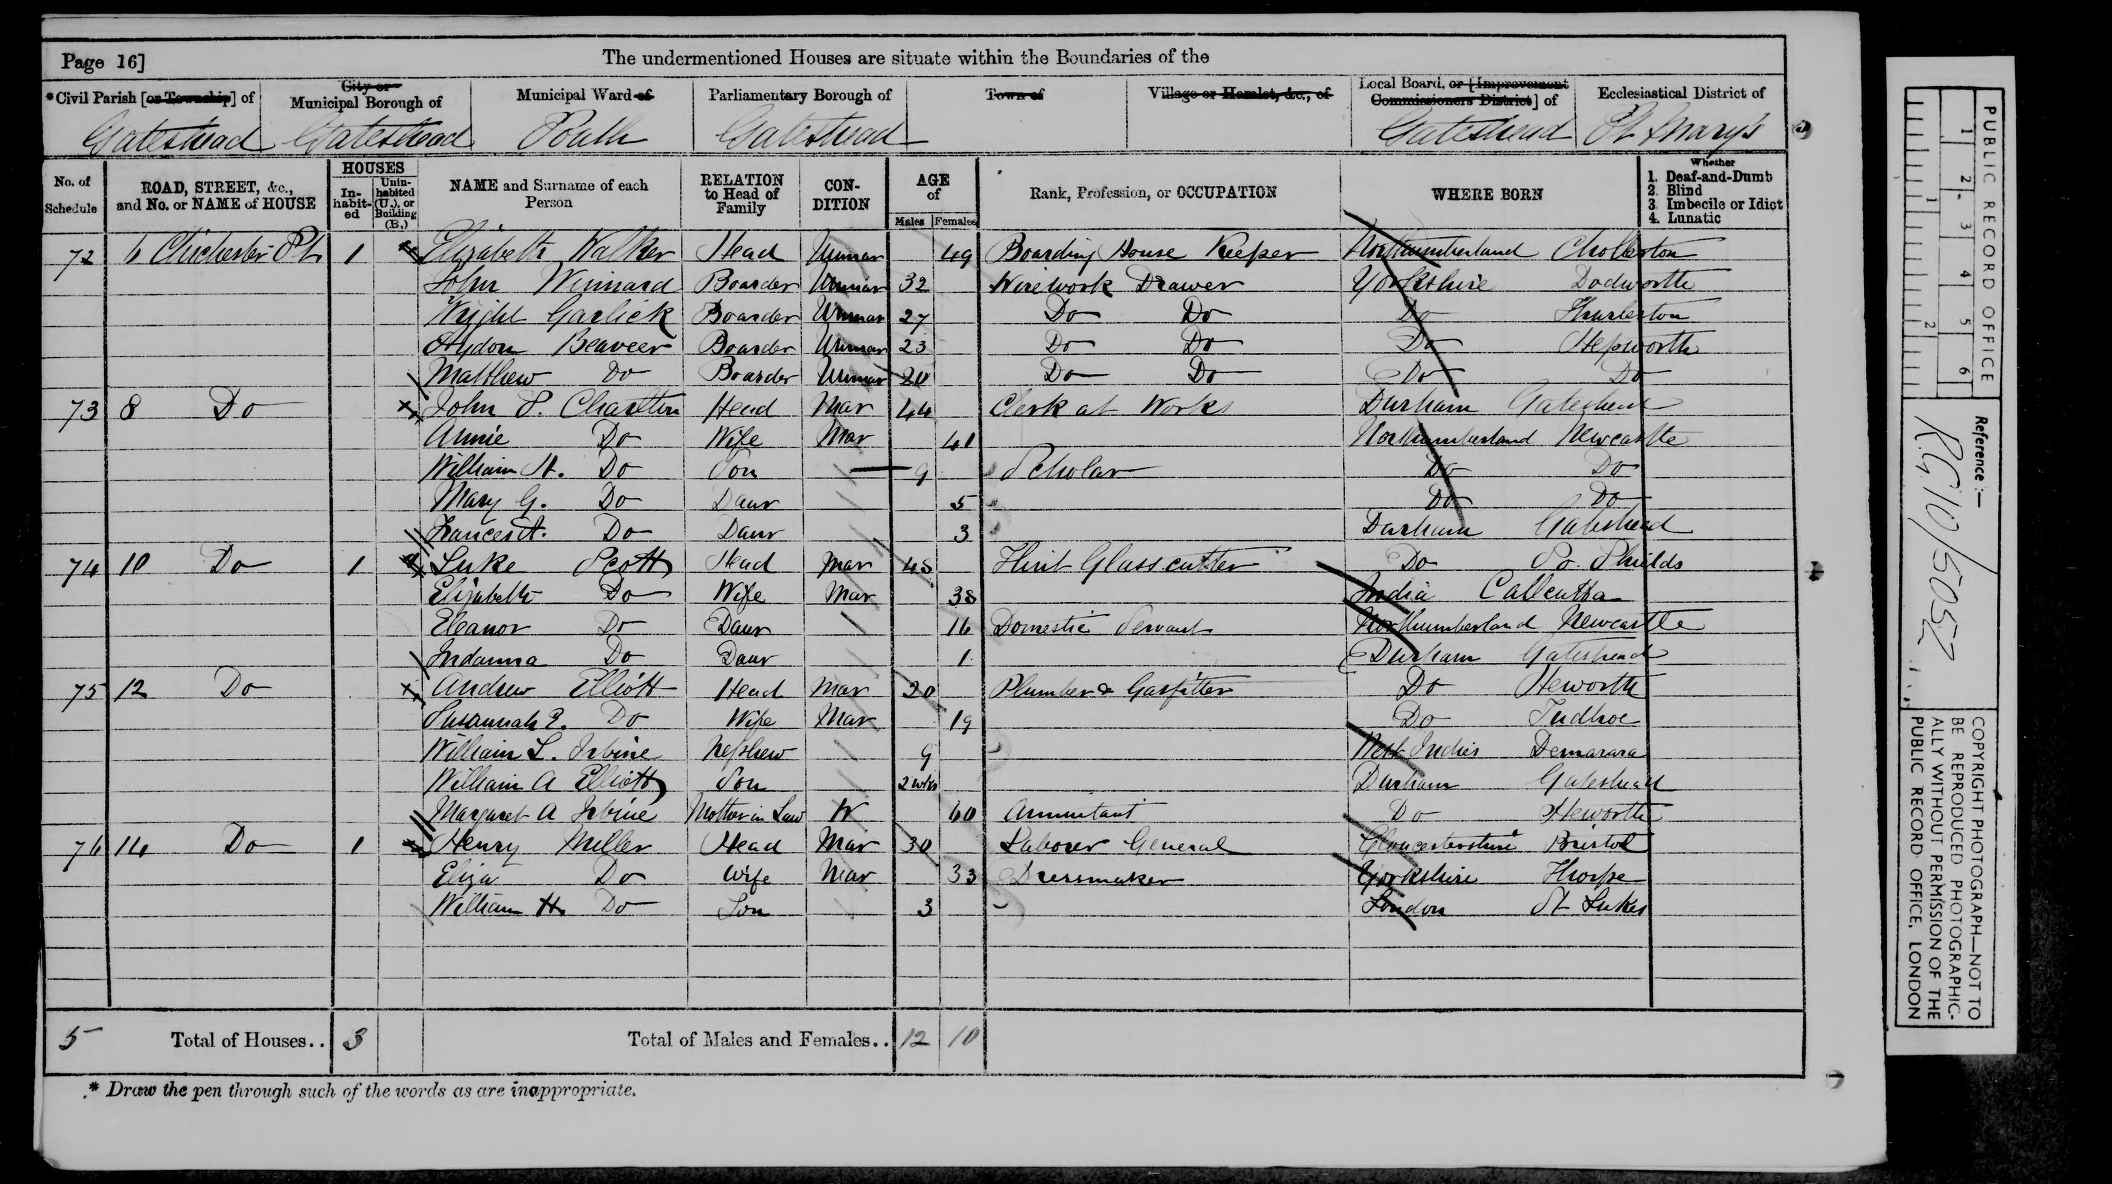 Page 16]
The undermentioned Houses are situate within the Boundaries of the
*Civil Parish [or Township] of
City or Municipal Borough of
Municipal Ward of
Parliamentary Borough of
Town of
Village or Hamlet, &c., of
Local Board, or [Improvement Commissioners District] of
Ecclesiastical District of
Gateshead Gateshead South Gateshead Gateshead St Mary's
No. of Schedule
ROAD, STREET, &c., and No. or NAME of HOUSE
HOUSES
Inhabited
Uninhabited (U.), or Building (B.)
NAME and Surname of each Person
RELATION to Head of Family
CONDITION
AGE of
Males Females
Rank, Profession, or OCCUPATION
WHERE BORN
Whether
1. Deaf-and-Dumb
2. Blind
3. Imbecile or Idiot
4. Lunatic
72 6 Chichester St 1 Elizabeth Walker Head Unmar 49 Boarding House Keeper Northumberland Chollerton
John Winnard Boarder Unmar 32 Wirework Drawer Yorkshire Dodworth
Wright Garlick Boarder Unmar 27 Do Do Do Thurleston
Boarder Unmar 23 Do Do Do Hepworth
Matthew Do Boarder Unmar 20 Do Do Do Do
73 8 Do John S. Charlton Head Mar 44 Clerk at Works Durham Gateshead
Annie Do Wife Mar 41 Northumberland Newcastle
William H. Do Son 9 Scholar Do Do
Mary G. Do Daur 5 Do Do
Frances A. Do Daur 3 Durham Gateshead
74 10 Do 1 Luke Scott Head Mar 45 Flint Glass cutter Do So. Shields
Elizabeth Do Wife Mar 38 India Callcutta
Eleanor Do Daur 16 Domestic Servant Northumberland Newcastle
Indanna Do Daur 1 Durham Gateshead
75 12 Do Andrew Elliott Head Mar 20 Plumber & Gasfitter Do Heworth
Susannah Do Wife Mar 19 Do Tudhoe
William L. Irbine Nephew 9 West Indies Demarara
William A Elliott Son 2 wks Durham Gateshead
Margaret A Irbine Mother in Law W 60 Annuitant Do Heworth
76 14 Do 1 Henry Miller Head Mar 30 Laborer General Gloucestershire Bristol
Eliza Do Wife Mar 33 Dressmaker Yorkshire Thorpe
William H. Do Son 3 London St Lukes
5 Total of Houses.. 3 Total of Males and Females.. 12 10
* Draw the pen through such of the words as are inappropriate.
PUBLIC RECORD OFFICE
1 2 3 4 5 6
1 2
Reference:—
R.G. 10/5052
COPYRIGHT PHOTOGRAPH—NOT TO
BE REPRODUCED PHOTOGRAPHIC-
ALLY WITHOUT PERMISSION OF THE
PUBLIC RECORD OFFICE, LONDON